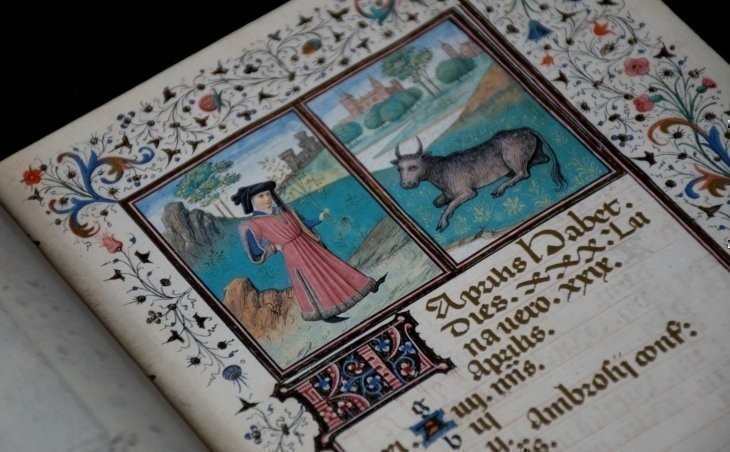 Aprilis habet
dies. xxx. Lu
na uero. xxix.
Aprilis.
KL
g
A
b
Ambrosij conf: